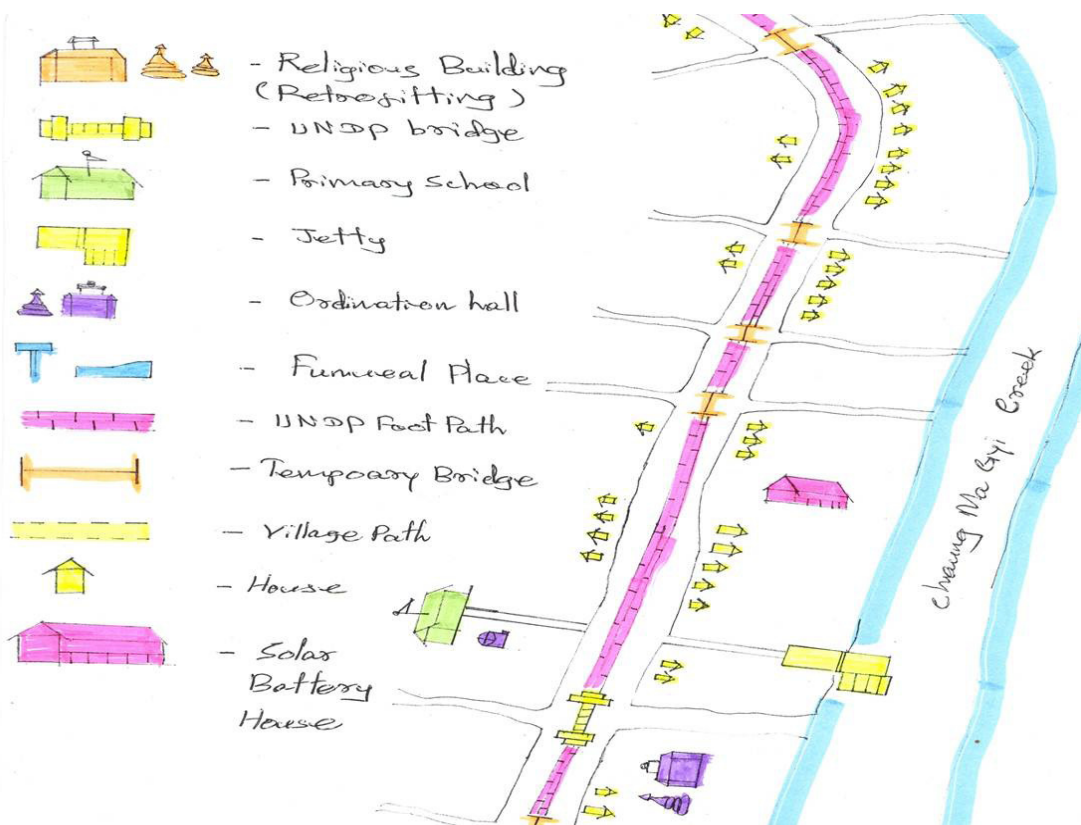 - Religious Building
(Retrofitting)
- UNDP bridge
- Primary School
- Jetty
- Ordination hall
- Funureal Place
- UNDP Foot Path
- Tempoary Bridge
- Village Path
- House
- Solar
Battery
House
Chaung Ma Gyi Creek